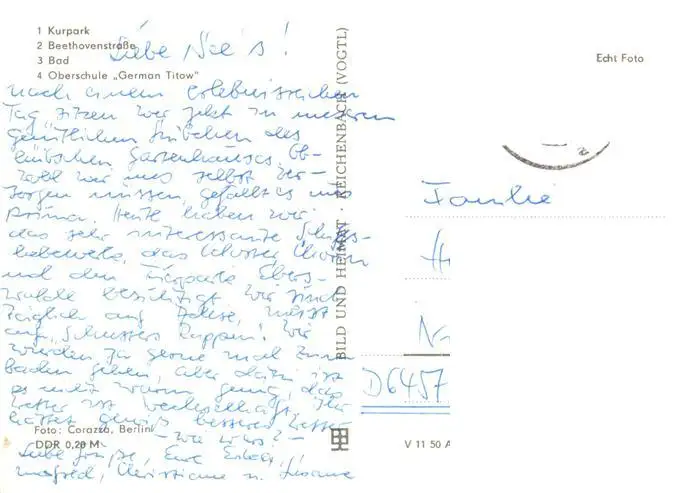 1 Kurpark
2 Beethovenstraße
3 Bad
4 Oberschule „German Titow"
Liebe Nee's!
nach einem erlebnisreichen
Tag sitzen wir jetzt in unserem
gemütlichen Stübchen des
hübschen Gartenhauses. Ob-
wohl wir uns selbst ver-
sorgen müssen, gefällt es uns
prima. Heute haben wir
das sehr interessante Schiffs-
hebewerk, das Kloster Chorin
und den Tierpark Ebers-
walde besichtigt. Wir sind
täglich auf Achse, meist
auf „Schusters Rappen! Wir
würden ja gerne mal zum
Baden gehen, aber dazu ist
es nicht warm genug, das
Wetter ist wechselhaft. Ihr
hattet gewiß besseres Wetter
- wie war's? -
Liebe Grüße, Eure
Manfred, Christiane u. Susanne
Foto: Corazza, Berlin
DDR 0,20 M
BILD UND HEIMAT · REICHENBACH (VOGTL)
Echt Foto
Familie
D6457
V 11 50 A